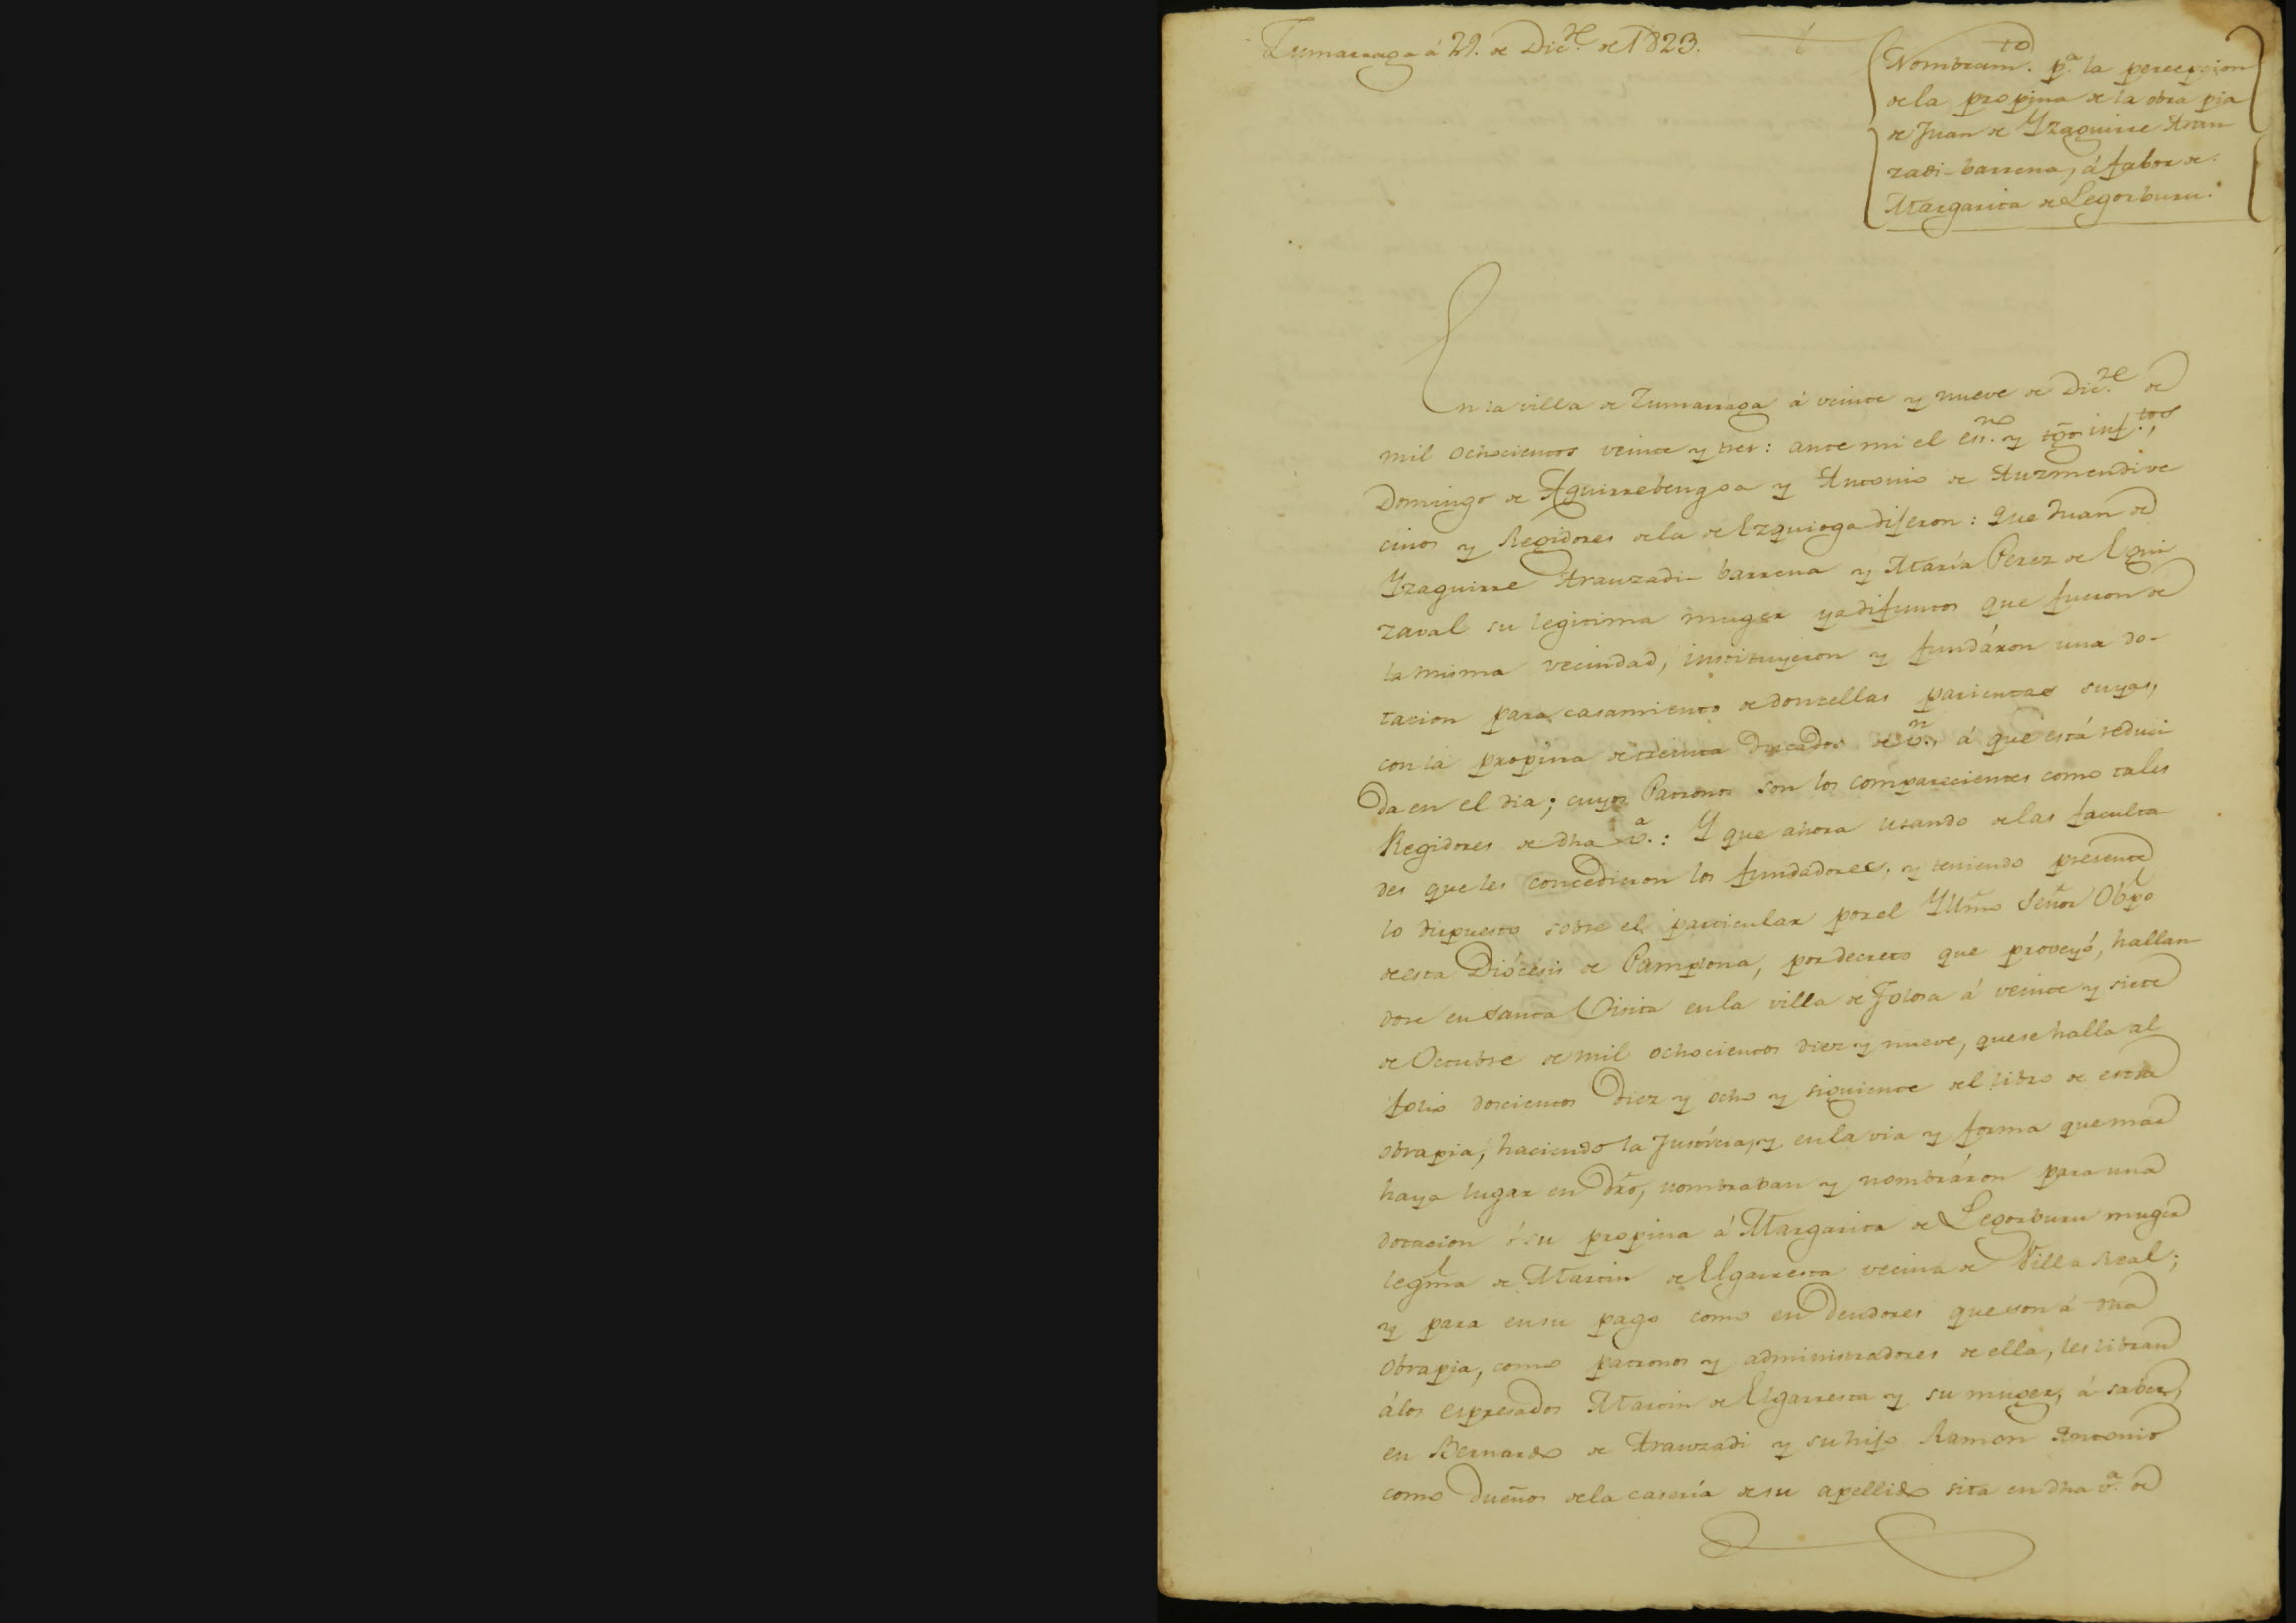 Zumarraga á 29. de Dic.re de 1823.
Nombram.to p.a la percepcion
de la propina de la obra pia
de Juan de Yzaguirre Aran
zadi-barrena, á fabor de
Margarita de Legorburu.
En la villa de Zumarraga á veinte y nueve de Dic.re de
mil ochocientos veinte y tres: ante mi el es.no y tgõs inf.tos,
Domingo de Aguirrebengoa y Antonio de Auzmendi ve
cinos y Regidores de la de Ezquioga dijeron: Que Juan de
Yzaguirre Aranzadi-barrena y María Perez de Egui
zaval su legitima muger ya difuntos que fueron de
la misma vecindad, instituyeron y fundáron una do-
tacion para casamiento de donzellas parientas suyas,
con la propina de treinta ducados de v.n, á que está reduci
da en el dia; cuyos Patronos son los comparecientes como tales
Regidores de dha v.a: Y que ahora usando de las faculta
des que les concedieron los fundadores, y teniendo presente
lo dispuesto sobre el particular por el Yllmõ Señor Obpõ
de esta Diócesis de Pamplona, por decreto que proveyó, hallan
dose en Santa Visita en la villa de Tolosa á veinte y siete
de Octubre de mil ochocientos diez y nueve, que se halla al
folio doscientos diez y ocho y siguiente del libro de esta
obrapia, haciendo la Justicia, y en la via y forma que mas
haya lugar en dro, nombraban y nombráron para una
dotacion ó su propina á Margarita de Legorburu muger
legma de Martin de Elgarresta vecina de Villa Real;
y para en su pago como en deudores que son á dha
Obrapia, como patronos y administradores de ella, les libran
á los espresados Martin de Elgarresta y su muger, á saber,
en Bernardo de Aranzadi y su hijo Ramon Antonio
como dueños de la casería de su apellido sita en dha v.a de